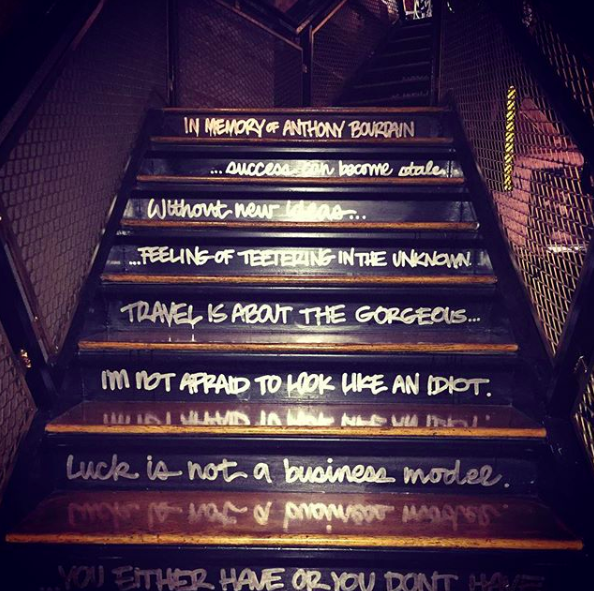 IN MEMORY OF ANTHONY BOURDAIN
...success can become stale
Without new ideas...
...FEELING OF TEETERING IN THE UNKNOWN
TRAVEL IS ABOUT THE GORGEOUS...
I'M NOT AFRAID TO LOOK LIKE AN IDIOT.
Luck is not a business model.
...YOU EITHER HAVE OR YOU DONT HAVE